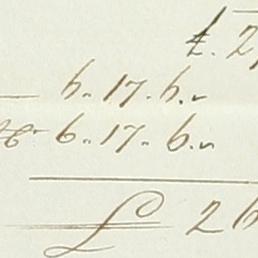 £. 2
6. 17. 6.
6. 17. 6.
£ 26